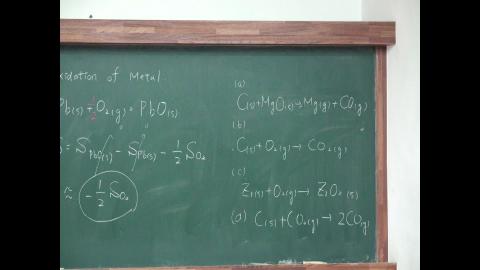 xidation of Metal
Pb(s) + 1/2 O₂(g) = PbO(s)
S = S PbO(s) - S Pb(s) - 1/2 S O₂
≈ - 1/2 S O₂
(a)
C(s) + MgO(s) → Mg(g) + CO(g)
(b)
C(s) + O₂(g) → CO₂(g)
(c)
Zr(s) + O₂(g) → ZrO₂(s)
(d) C(s) + CO₂(g) → 2CO(g)